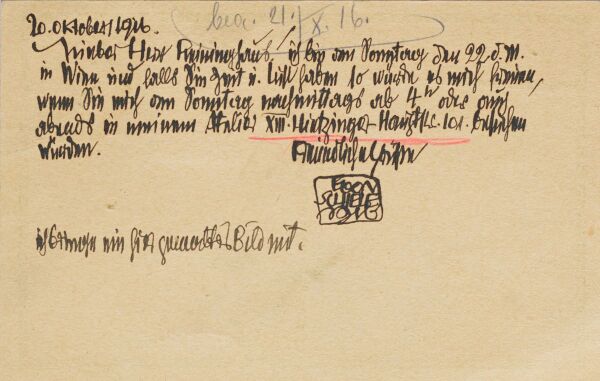 bea. 21./X. 16.
20. Oktober 1916.
Lieber Herr Reininghaus, ich bin am Sonntag den 22. d. M.
in Wien und falls Sie Zeit u. Lust haben so würde es mich freuen,
wenn Sie mich am Sonntag nachmittags ab 4ʰ oder auch
abends in meinem Atelier XIII. Hietzinger-Hauptstr. 101. besuchen
würden. Freundliche Grüße
EGON
SCHIELE
1916
ich bringe ein hier gemachtes Bild mit.